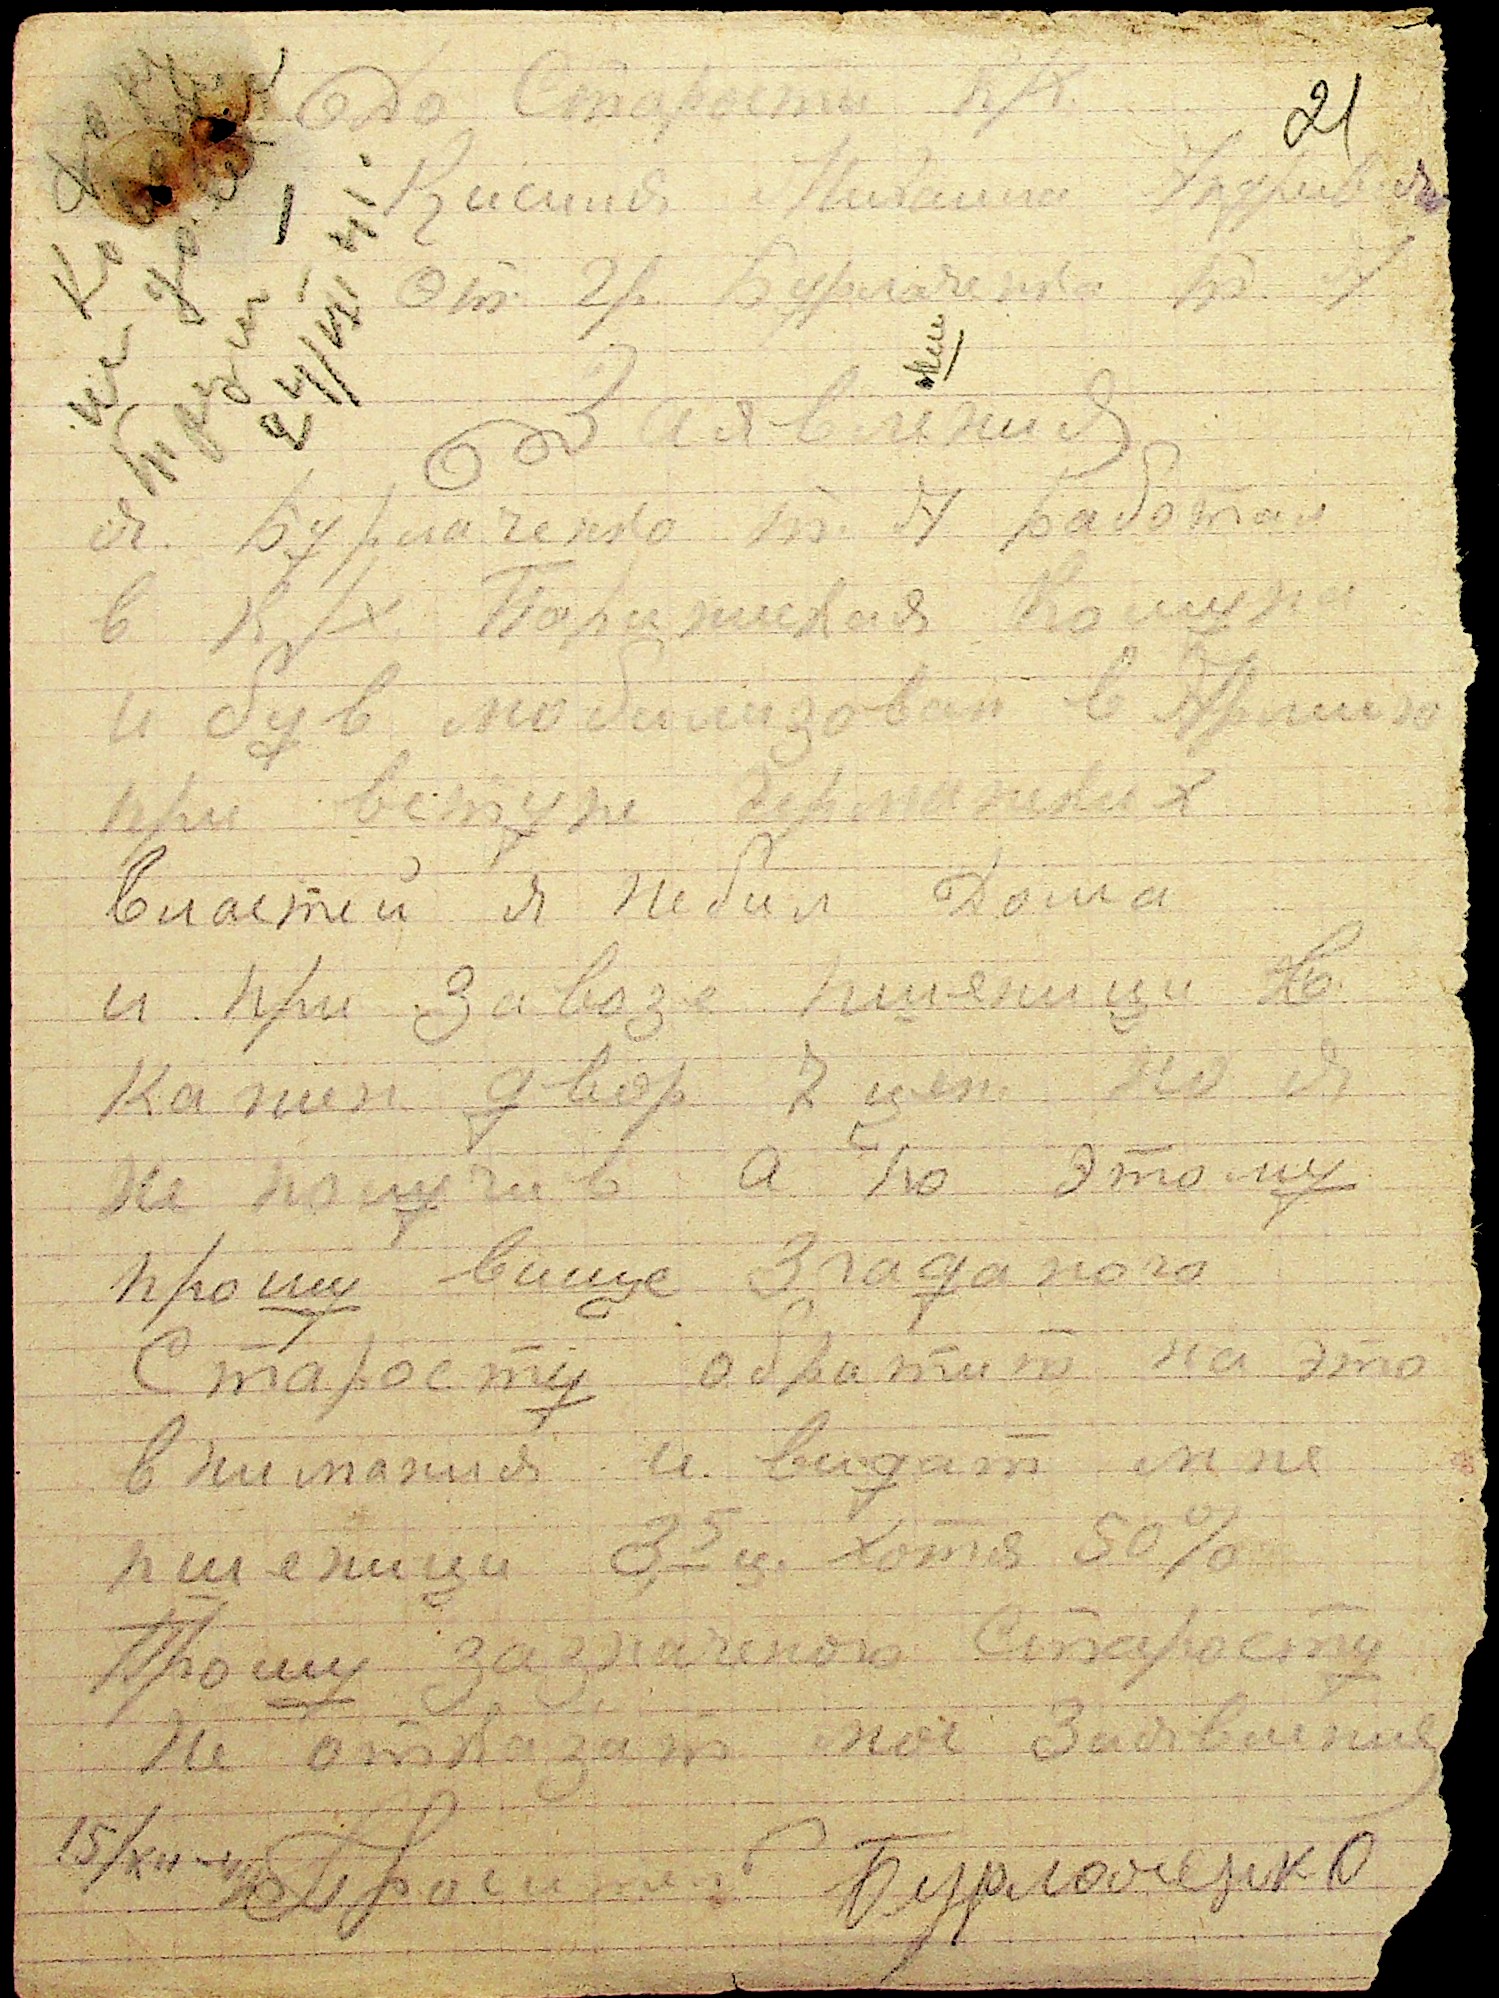 21
До Старости к/х.
Кисиля Михаила
От гр. Бурлаченка т. Я
Заявления
я. Бурлаченко т. Я работал
в к/х. Парижская Комуна
и був мобилизован в Армию
при вступе германских
властей я небил Дома
и при завозе пшеници на
кажен двор 7 цен. но я
не получив а по этому
прошу више Згаданого
Старосту обратит на это
внимания и видат мне
пшеници 3,5 ц. хотя 50%
Прошу зазначеного Старосту
не отказат мое Заявления
15/XII-41
Проситель Бурлаченко